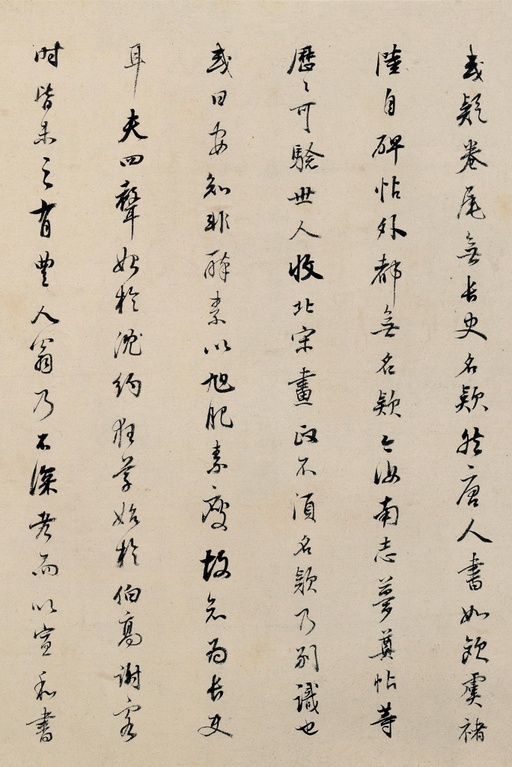 或疑卷尾無長史名款然唐人書如歐虞褚
陸自碑帖外都無名款今汝南志夢奠帖等
歷〻可驗世人收北宋畫政不須名款乃別識也
或曰安知非醉素以旭肥素瘦故知為長史
耳夫四聲始於沈約狂草始於伯高謝客
時皆未之有豐人翁乃不深考而以宣和書